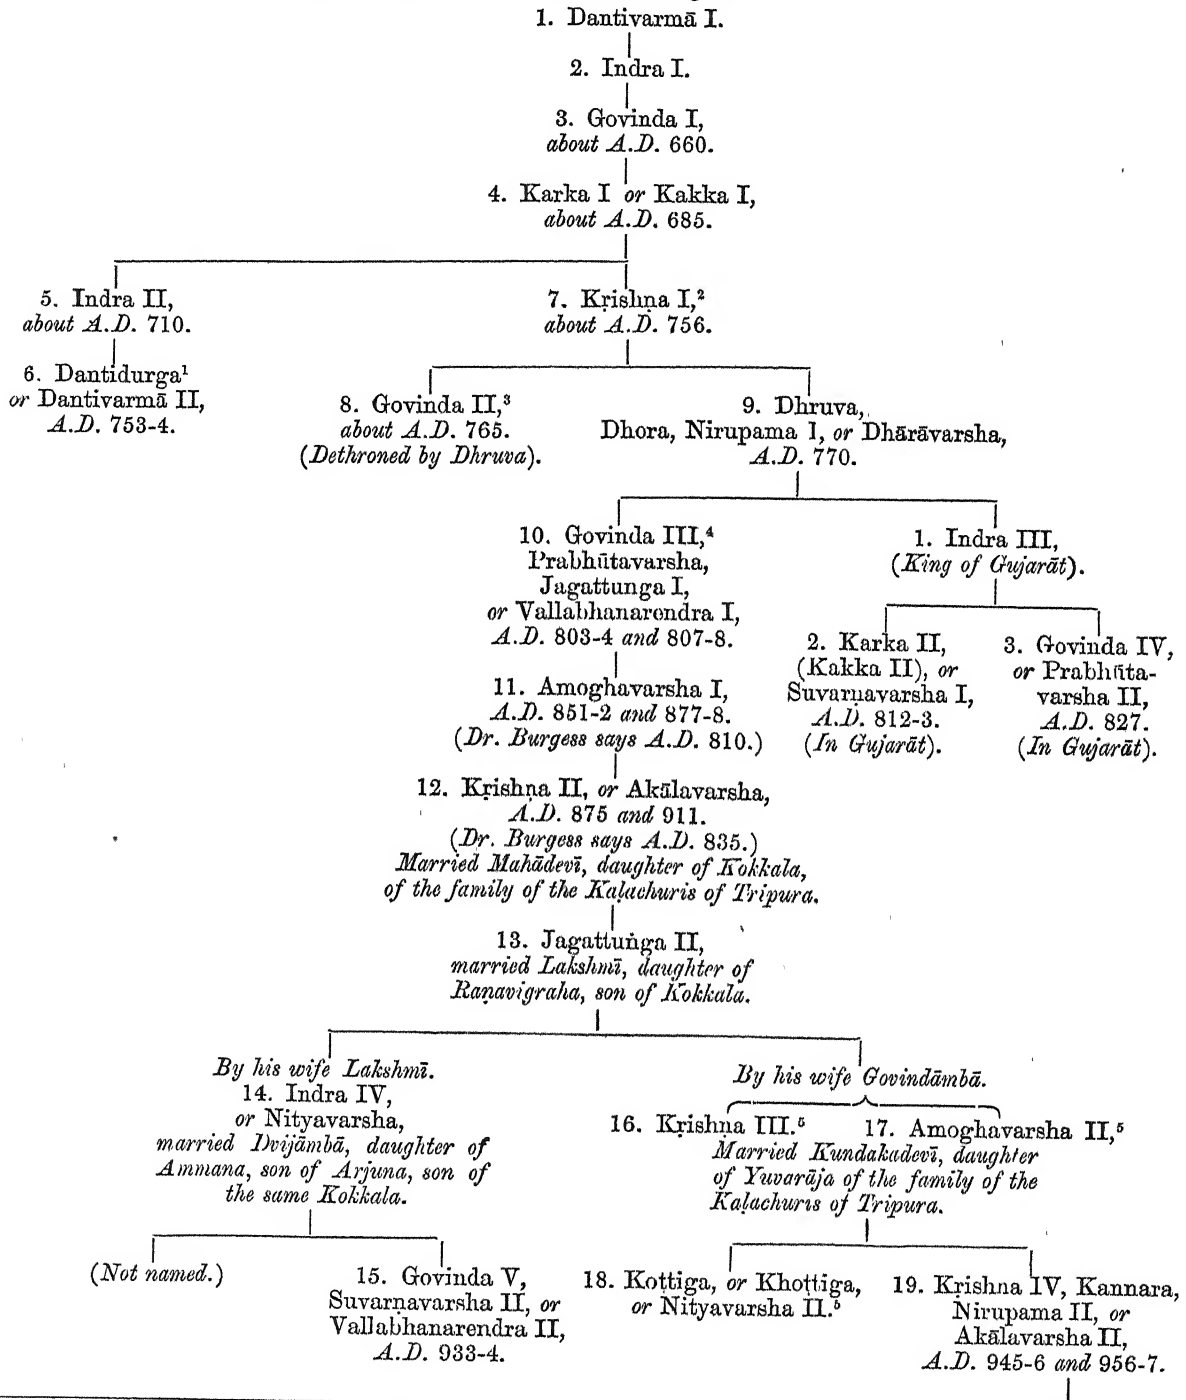 1. Dantivarmā I.
2. Indra I.
3. Govinda I,
about A.D. 660.
4. Karka I or Kakka I,
about A.D. 685.
5. Indra II,
about A.D. 710.
6. Dantidurga¹
or Dantivarmā II,
A.D. 753-4.
7. Kṛishṇa I,²
about A.D. 756.
8. Govinda II,³
about A.D. 765.
(Dethroned by Dhruva).
9. Dhruva,
Dhora, Nirupama I, or Dhārāvarsha,
A.D. 770.
10. Govinda III,⁴
Prabhūtavarsha,
Jagattunga I,
or Vallabhanarendra I,
A.D. 803-4 and 807-8.
1. Indra III,
(King of Gujarāt).
2. Karka II,
(Kakka II), or
Suvarṇavarsha I,
A.D. 812-3.
(In Gujarāt).
3. Govinda IV,
or Prabhūta-
varsha II,
A.D. 827.
(In Gujarāt).
11. Amoghavarsha I,
A.D. 851-2 and 877-8.
(Dr. Burgess says A.D. 810.)
12. Kṛishṇa II, or Akālavarsha,
A.D. 875 and 911.
(Dr. Burgess says A.D. 835.)
Married Mahādevī, daughter of Kokkala,
of the family of the Kaḷachuris of Tripura.
13. Jagattuṅga II,
married Lakshmī, daughter of
Raṇavigraha, son of Kokkala.
By his wife Lakshmī.
14. Indra IV,
or Nityavarsha,
married Dvijāmbā, daughter of
Ammana, son of Arjuna, son of
the same Kokkala.
By his wife Govindāmbā.
16. Kṛishṇa III.⁵ 17. Amoghavarsha II,⁵
Married Kundakadevī, daughter
of Yuvarāja of the family of the
Kaḷachuris of Tripura.
(Not named.)
15. Govinda V,
Suvarṇavarsha II, or
Vallabhanarendra II,
A.D. 933-4.
18. Koṭṭiga, or Khoṭṭiga,
or Nityavarsha II.⁵
19. Kṛishṇa IV, Kannara,
Nirupama II, or
Akālavarsha II,
A.D. 945-6 and 956-7.